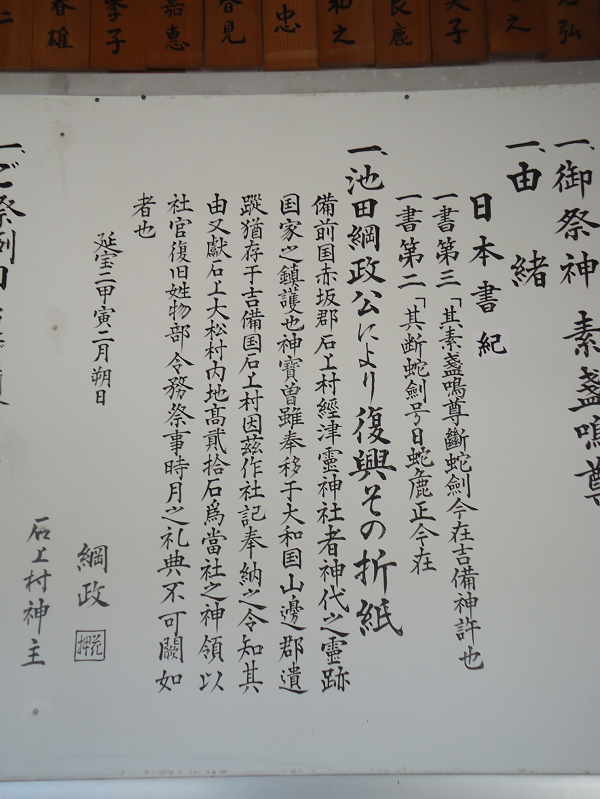 弘
之
夫子
良鹿
和之
忠
春見
嘉惠
季子
春雄
仁
一、御祭神 素盞鳴尊
一、由緒
日本書紀
一書第三「其素盞鳴尊斷蛇劍今在吉備神許也
一書第二「其断蛇劍号曰蛇麁正今在
一、池田綱政公により復興その折紙
備前国赤坂郡石上村經津靈神社者神代之靈跡
国家之鎮護也神寶曽雖奉移于大和国山邊郡遺
蹤猶存于吉備国石上村因茲作社記奉納之令知其
由又獻石上大松村内地髙貳拾石爲當社之神領以
社官復旧姓物部令務祭事時月之礼典不可闕如
者也
延宝二甲寅二月朔日
綱政 花押
石上村神主
一、ご祭例日